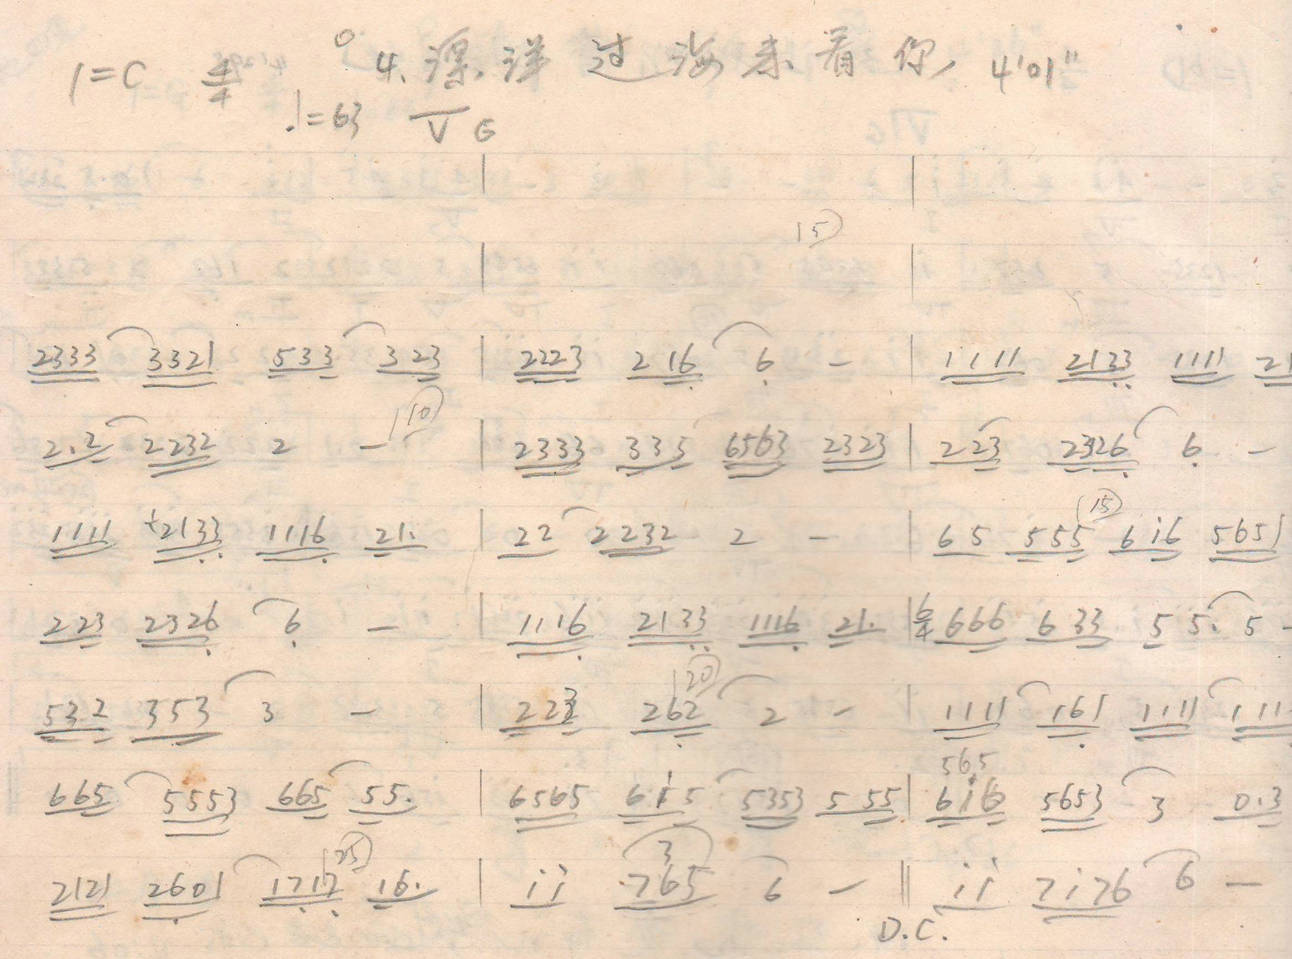 1=C 4/4 4. 漂洋过海来看你 4'01"
♩=63 V G
| |
| 15) |
2333 3321 533 323 | 2223 216 6 - | 1111 2133 1111 21
2.2 2232 2 - (10) | 2333 335 6563 2323 | 223 2326 6 -
1111 2133 1116 21. | 22 2232 2 - | 65 555 (15) 6i6 565
223 2326 6 - | 1116 2133 1116 21. | 6/4 666 633 55. 5 -
532 353 3 - | 223 262 (20) 2 - | 1111 161 1111 111
565
665 5553 665 55. | 6565 6i5 5353 555 | 6i6 5653 3 0.3
2121 2601 1712 (25) 16. | ii 765 3 6 - || ii 7i76 6 -
D.C.